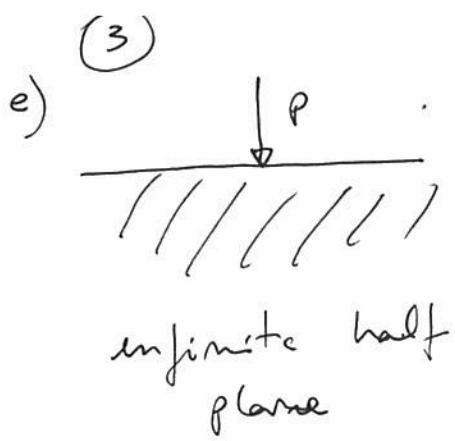 3
e)
P
infinite half
plane